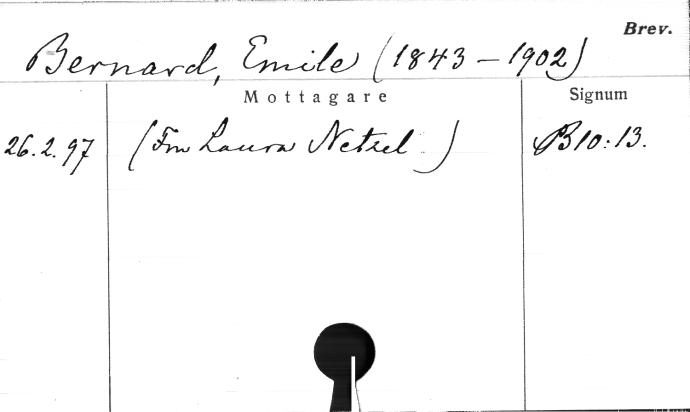 Brev.
Bernard, Emile (1843 – 1902)
Mottagare Signum
26.2.97 (Fru Laura Netzel.) B10:13.